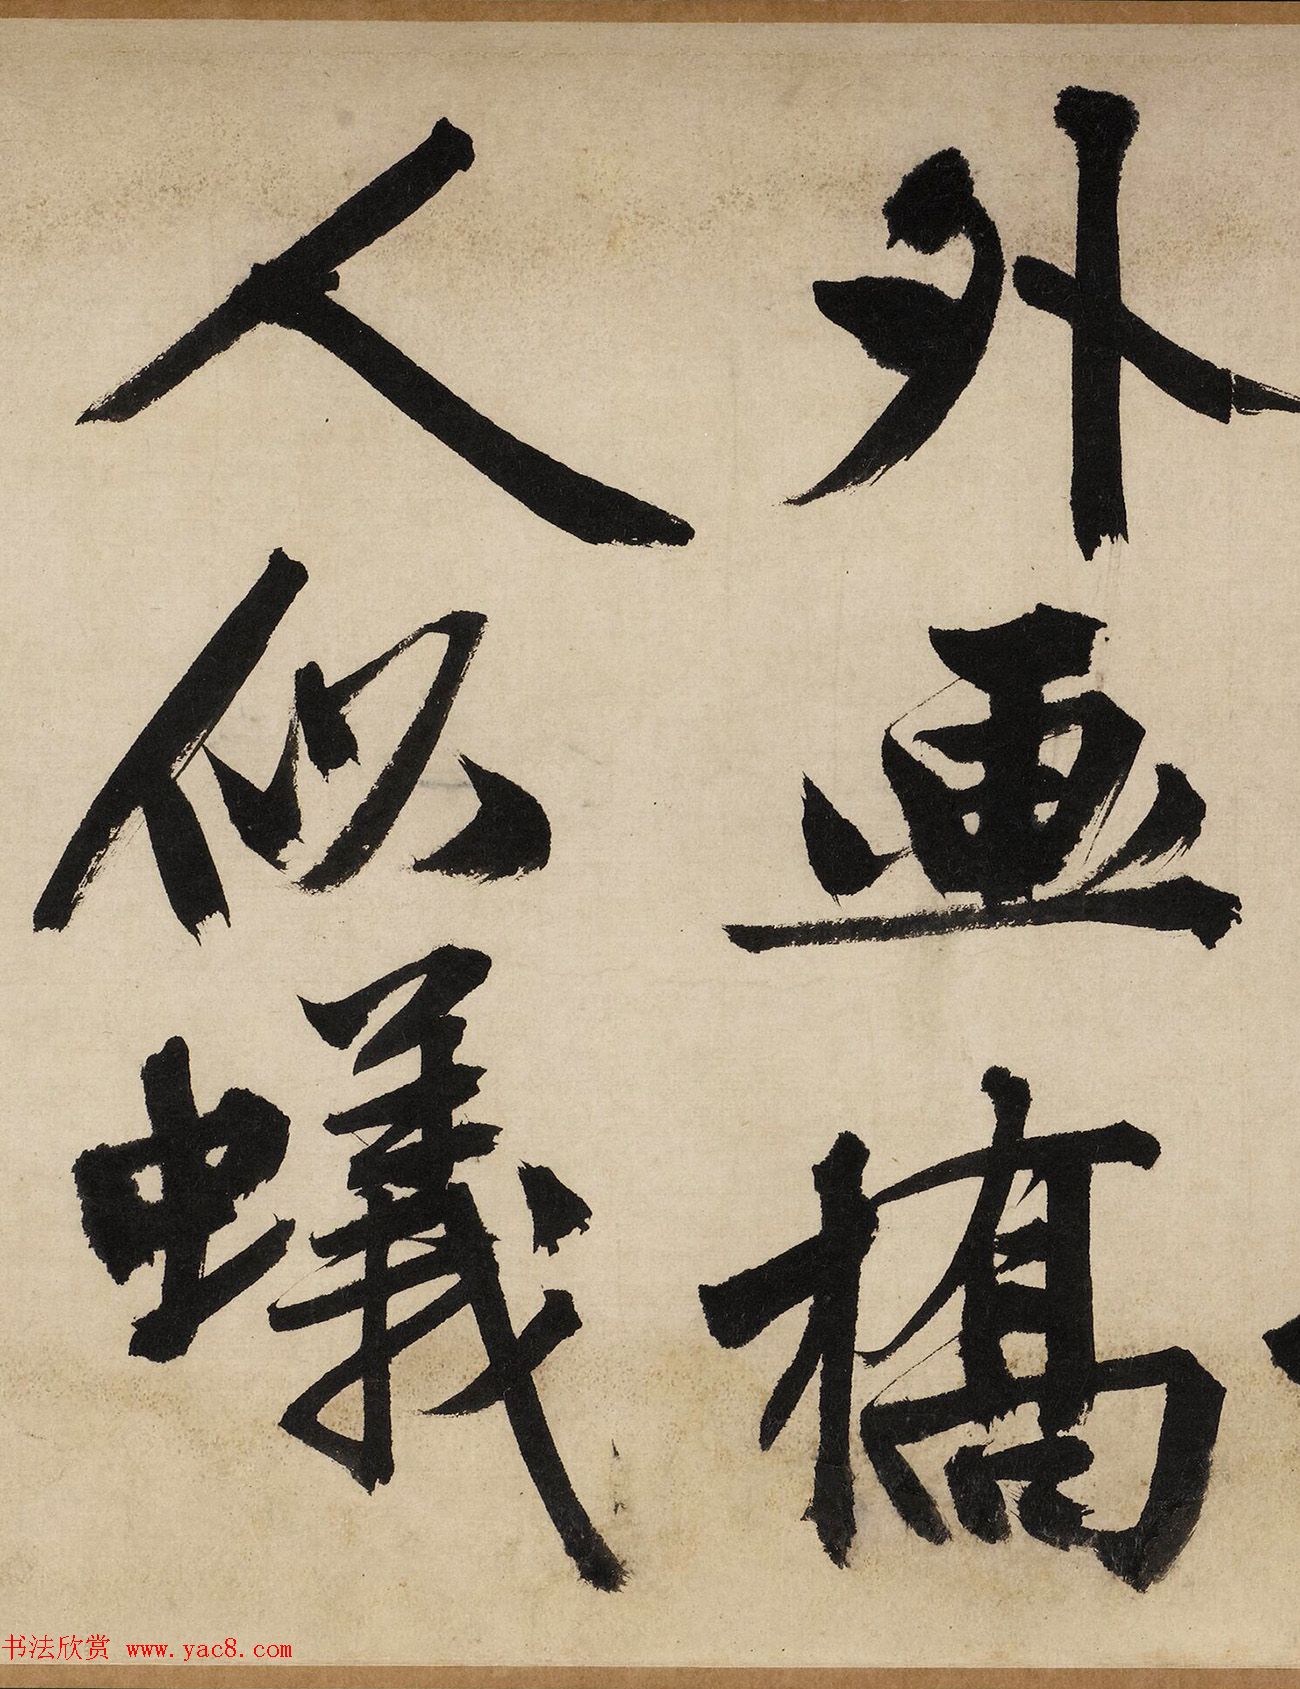 外画橋
人似蟻
书法欣赏 www.yac8.com